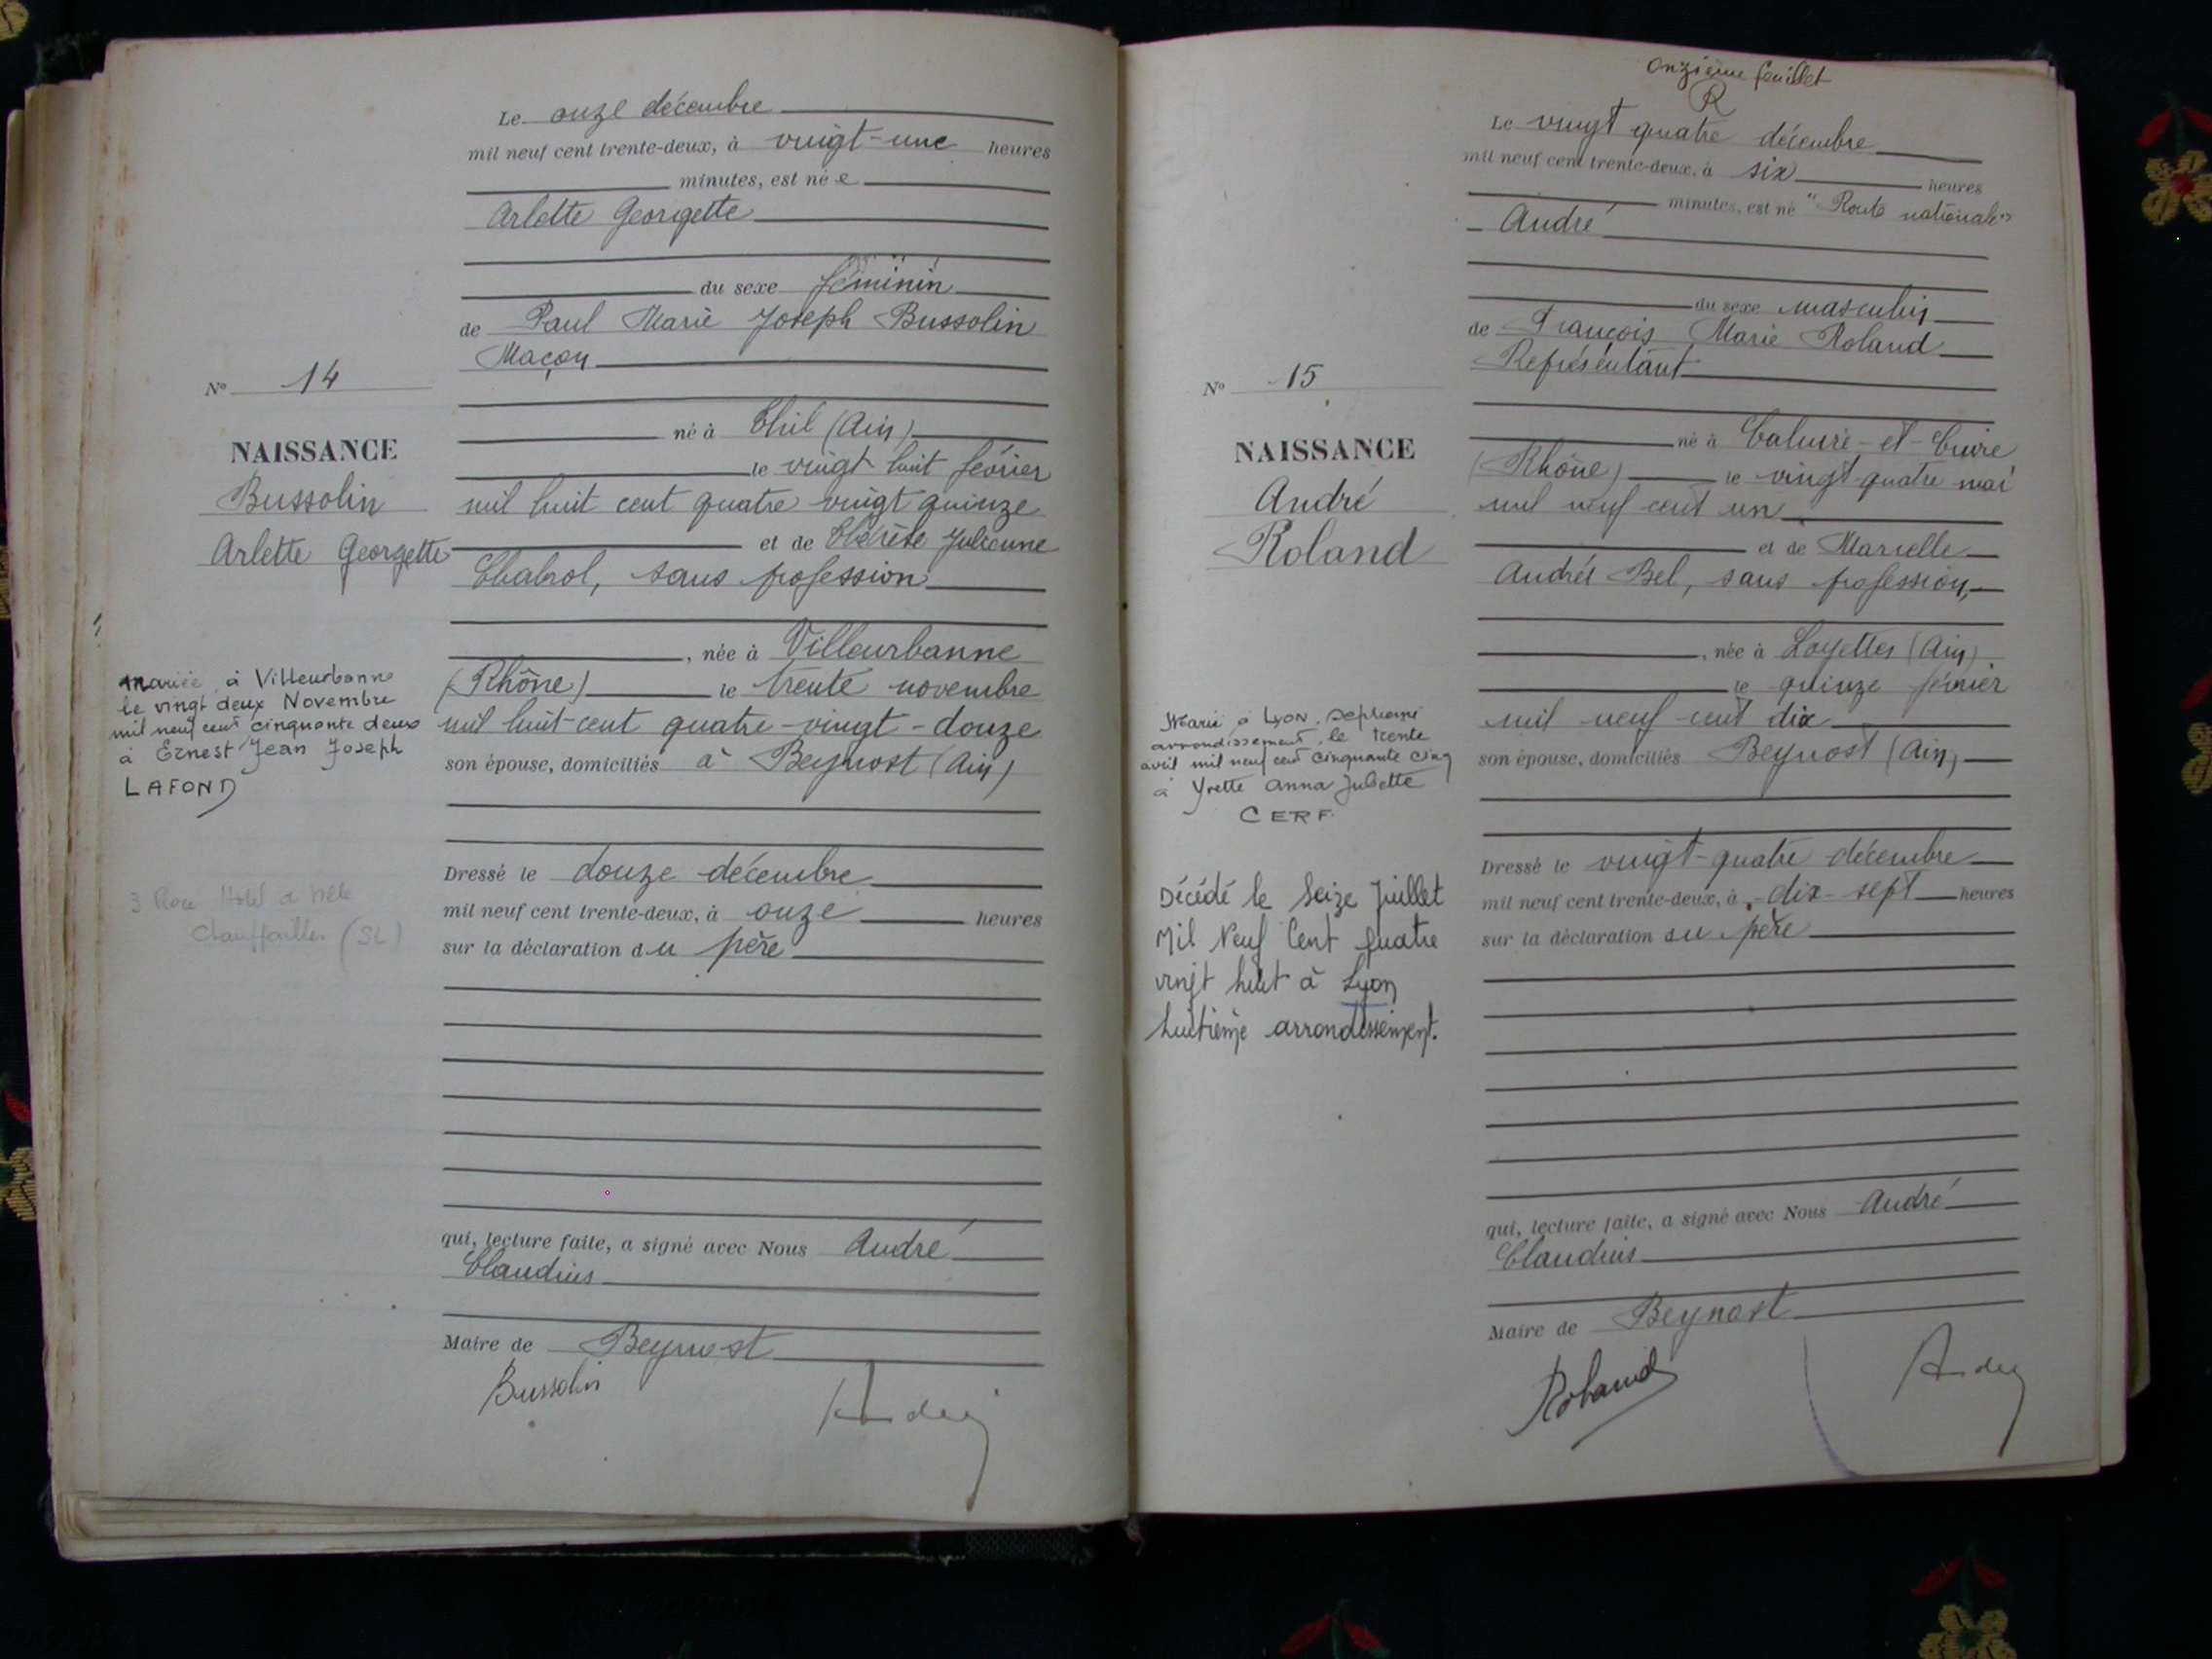 Le onze décembre
mil neuf cent trente-deux, à vingt-une heures
minutes, est née
Arlette Georgette
du sexe féminin
de Paul Marie Joseph Bussolin
Maçon
né à Thil (Ain)
le vingt huit février
mil huit cent quatre vingt quinze
et de Thérèse Julienne
Chabrol, sans profession
, née à Villeurbanne
(Rhône) le trente novembre
mil huit-cent quatre-vingt-douze
son épouse, domiciliés à Beynost (Ain)
Dressé le douze décembre
mil neuf cent trente-deux, à onze heures
sur la déclaration du père
qui, lecture faite, a signé avec Nous André
Claudius
Maire de Beynost
Bussolin
No 14
NAISSANCE
Bussolin
Arlette Georgette
Mariée à Villeurbanne
le vingt deux Novembre
mil neuf cent cinquante deux
à Ernest Jean Joseph
LAFOND
3 Place Hotel de Ville
Chauffailles (SL)
Onzième feuillet
R
Le vingt quatre décembre
mil neuf cent trente-deux, à six heures
minutes, est né "Route nationale"
André
du sexe masculin
de François Marie Roland
Représentant
né à Caluire-et-Cuire
(Rhône) le vingt-quatre mai
mil neuf cent un
et de Marcelle
Andrée Bel, sans profession,
, née à Loyettes (Ain)
le quinze février
mil neuf cent dix
son épouse, domiciliés Beynost (Ain)
Dressé le vingt-quatre décembre
mil neuf cent trente-deux, à dix-sept heures
sur la déclaration du père
qui, lecture faite, a signé avec Nous André
Claudius
Maire de Beynost
Roland
No 15
NAISSANCE
André
Roland
Marié à Lyon septième
arrondissement, le trente
avril mil neuf cent cinquante cinq
à Yvette Anna Juliette
CERF
Décédé le Seize Juillet
Mil Neuf Cent quatre
vingt huit à Lyon
huitième arrondissement.